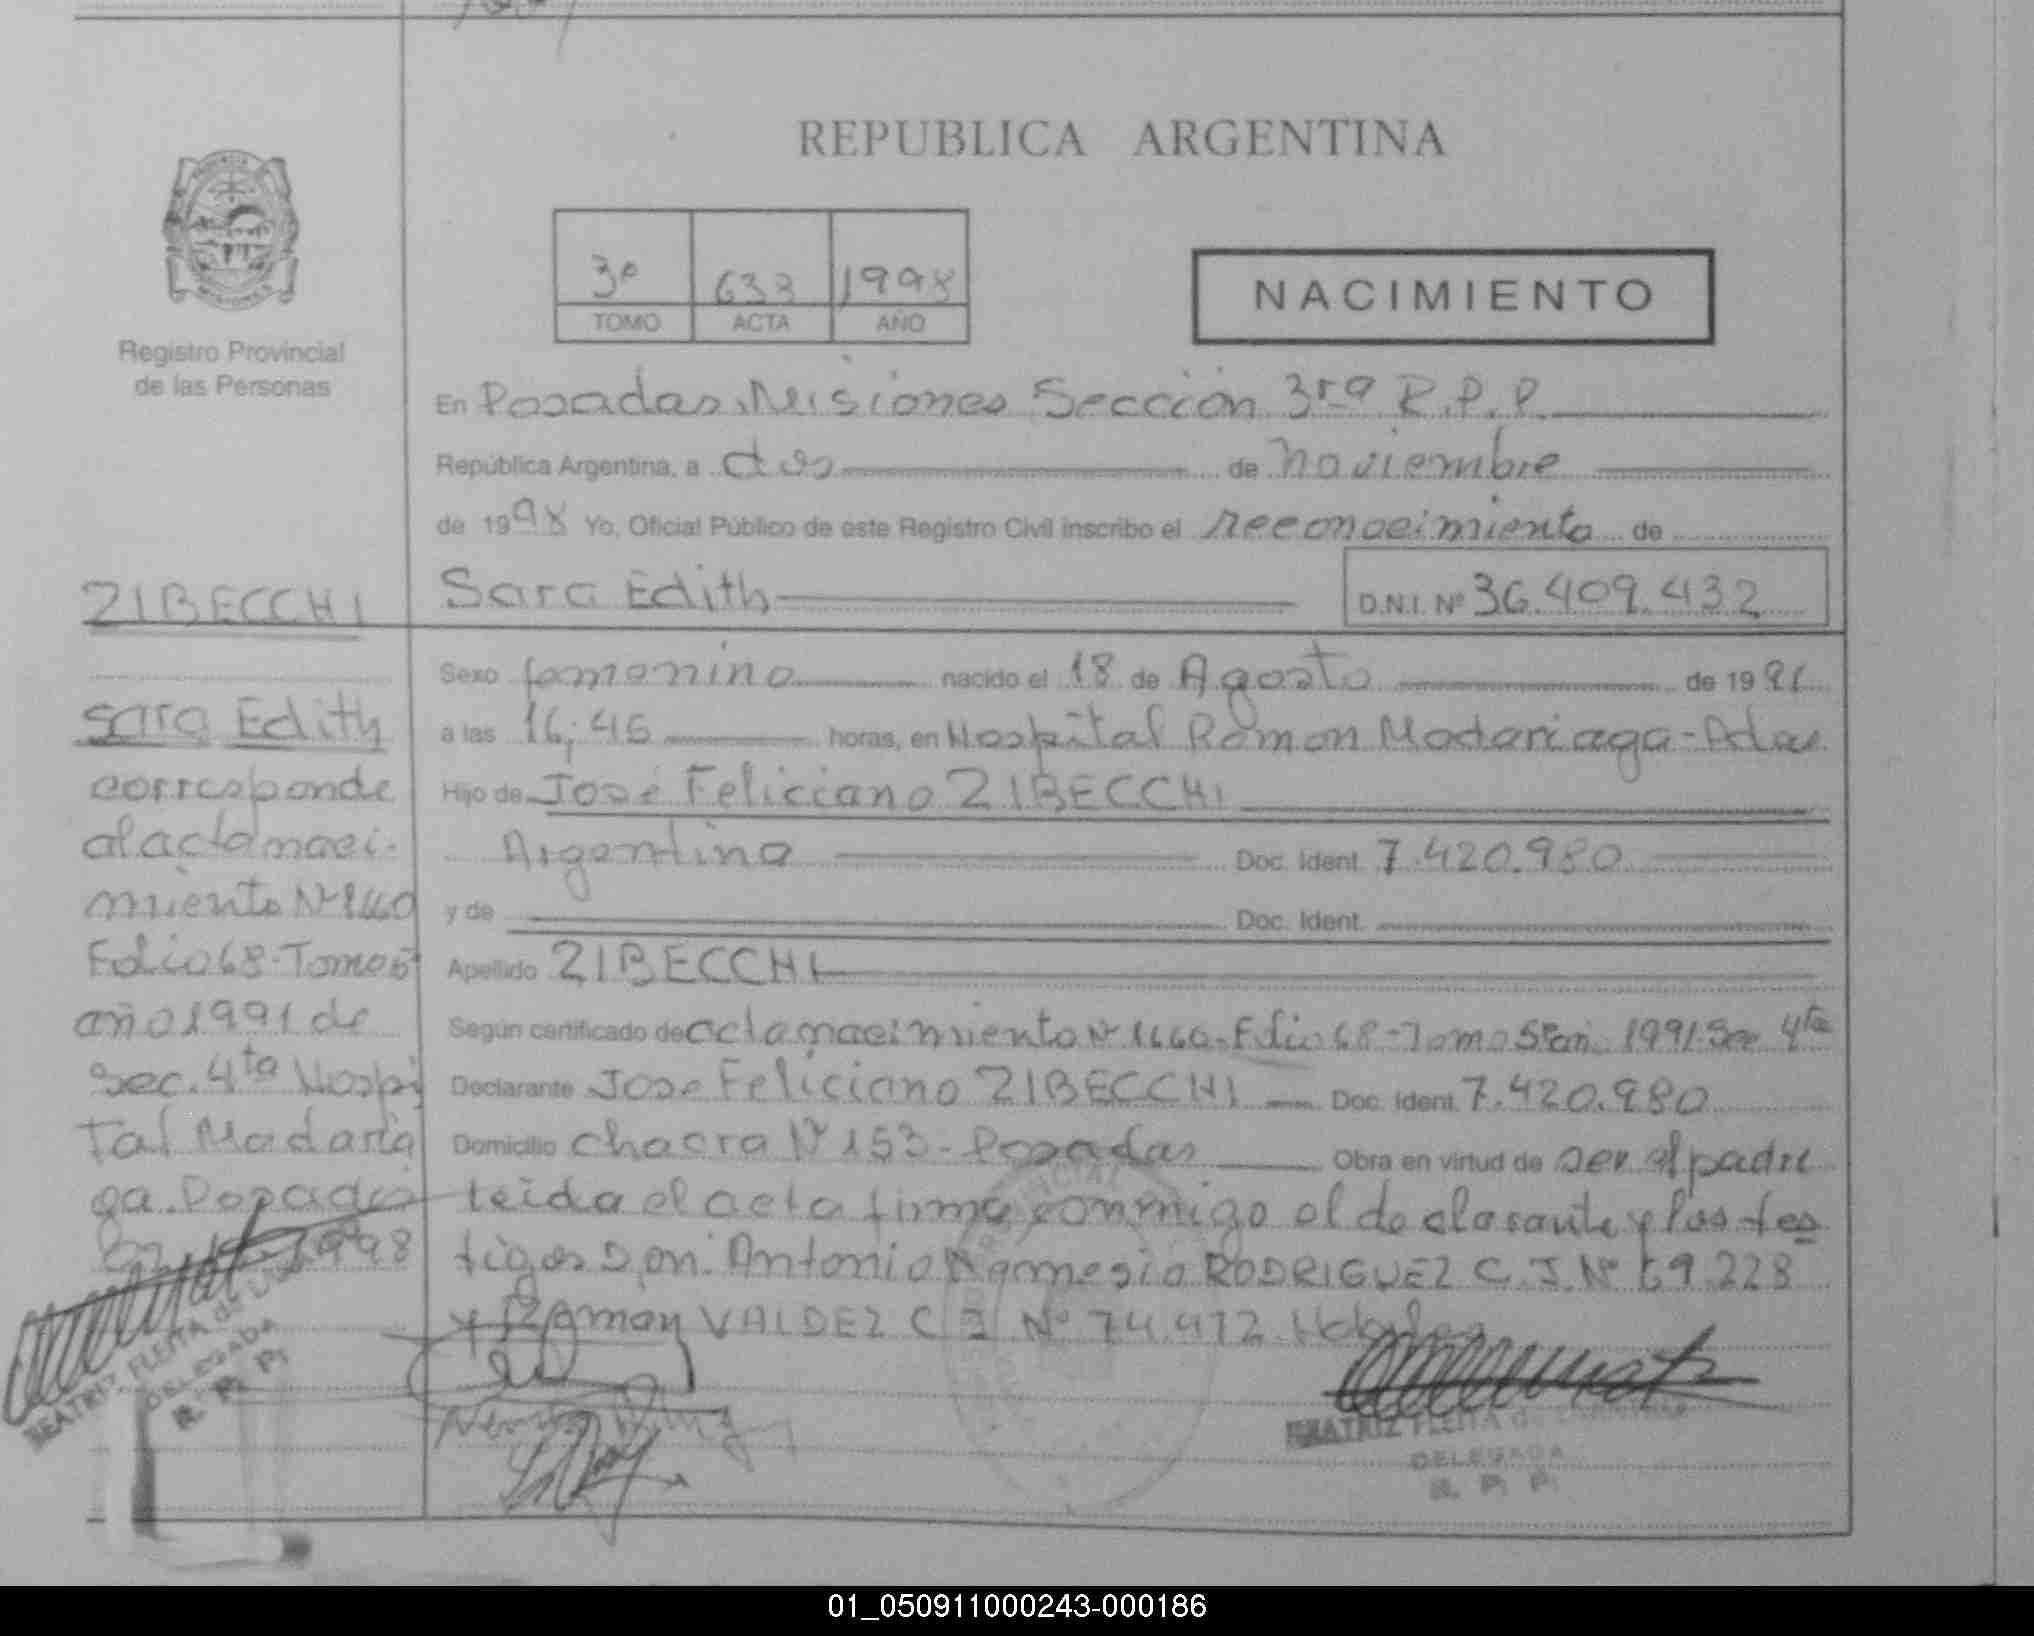 REPUBLICA ARGENTINA
3º 633 1998
TOMO ACTA AÑO
NACIMIENTO
Registro Provincial
de las Personas
En Posadas, Misiones Sección 3ra R.P.P.
República Argentina, a dos de noviembre
de 1998 Yo, Oficial Público de este Registro Civil inscribo el reconocimiento de
Sara Edith D.N.I. Nº 36.409.432
Sexo femenino nacido el 18 de Agosto de 1991
a las 16:45 horas, en Hospital Ramon Madariaga - Pdas
Hijo de José Feliciano ZIBECCHI
Argentino Doc. Ident. 7.420.980
y de Doc. Ident.
Apellido ZIBECCHI
Según certificado de acta nacimiento Nº 1460 - Folio 68 - Tomo 5º 1991 Sec 4ta
Declarante Jose Feliciano ZIBECCHI Doc. Ident. 7.420.980
Domicilio chacra Nº 153 - Posadas Obra en virtud de ser el padre
leida el acta firma conmigo el declarante y los tes
tigos Don: Antonio Nemesio RODRIGUEZ C.I. Nº 69.228
y Ramon VALDEZ C I Nº 74.972
BEATRIZ FLEITA de
DELEGADA
R. P. P.
ZIBECCHI
Sara Edith
corresponde
al acta naci-
miento Nº 1460
Folio 68 - Tomo 5º
año 1991 de
Sec. 4ta Hospi
tal Madaria
ga. Posadas
1998
BEATRIZ FLEITA de
DELEGADA
R. P. P.
01_050911000243-000186